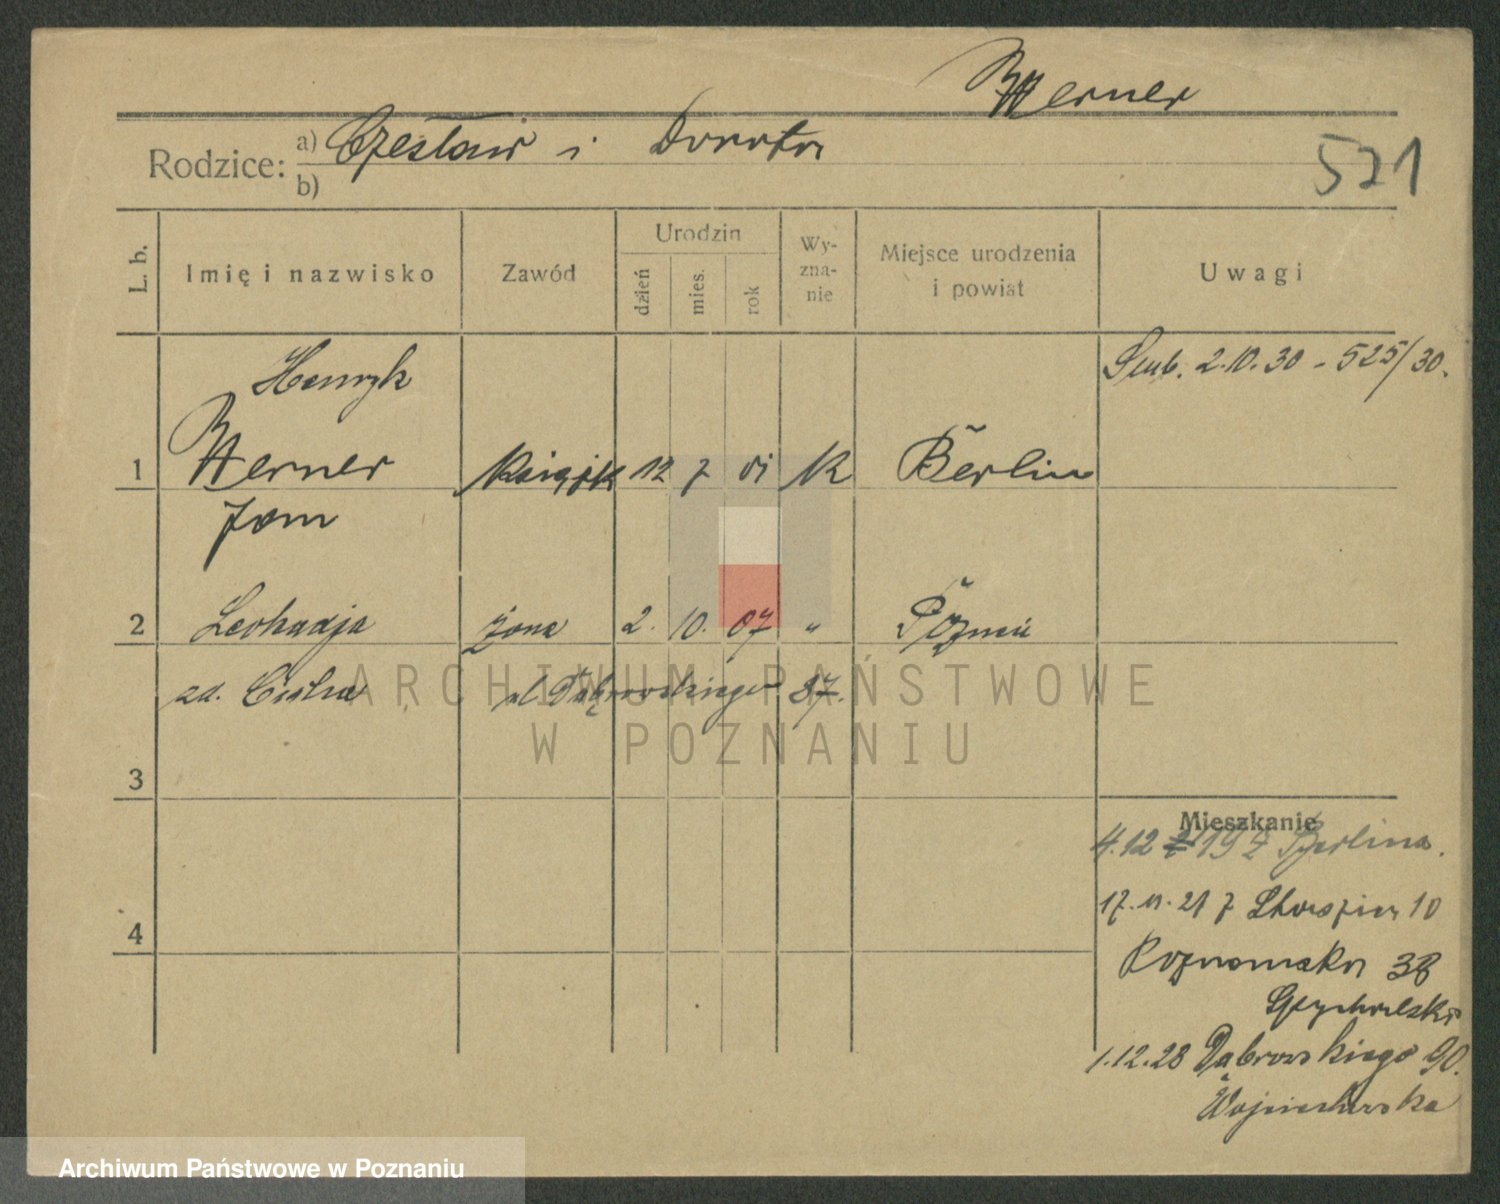 Werner
Rodzice: a) Czesław i Dorota
b)
521
L. b.
Imię i nazwisko
Zawód
Urodzin
dzień
mies.
rok
Wy-
zna-
nie
Miejsce urodzenia
i powiat
Uwagi
Henryk
ślub. 2.10.30 - 525/30.
1 Werner 12 7 01 K Berlin
Jan
2 Leokadja żona 2. 10. 07 " Poznań
zd. ul Dąbrowskiego 87.
3
Mieszkanie
4.12 19 z Berlina.
17.11.21 z 10
4
Poznańska 38
1.12.28 Dąbrowskiego 90.
Wojciechowska
ARCHIWUM PAŃSTWOWE
W POZNANIU
Archiwum Państwowe w Poznaniu